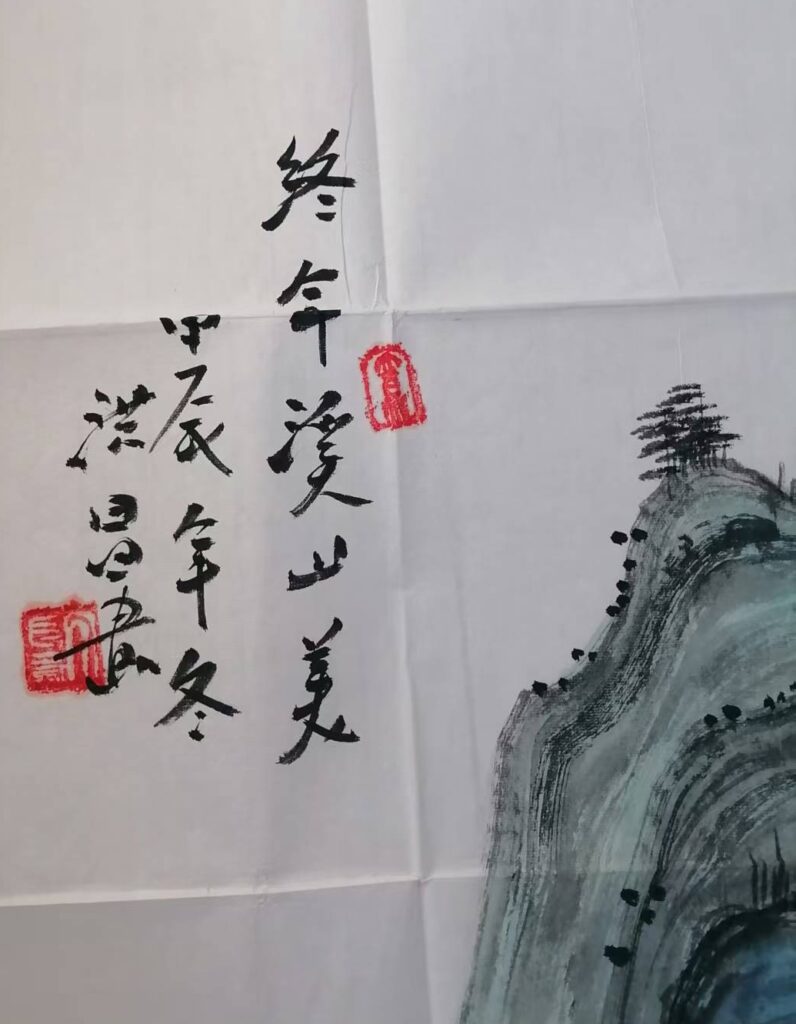 终年溪山美
甲辰年冬
洪昌画